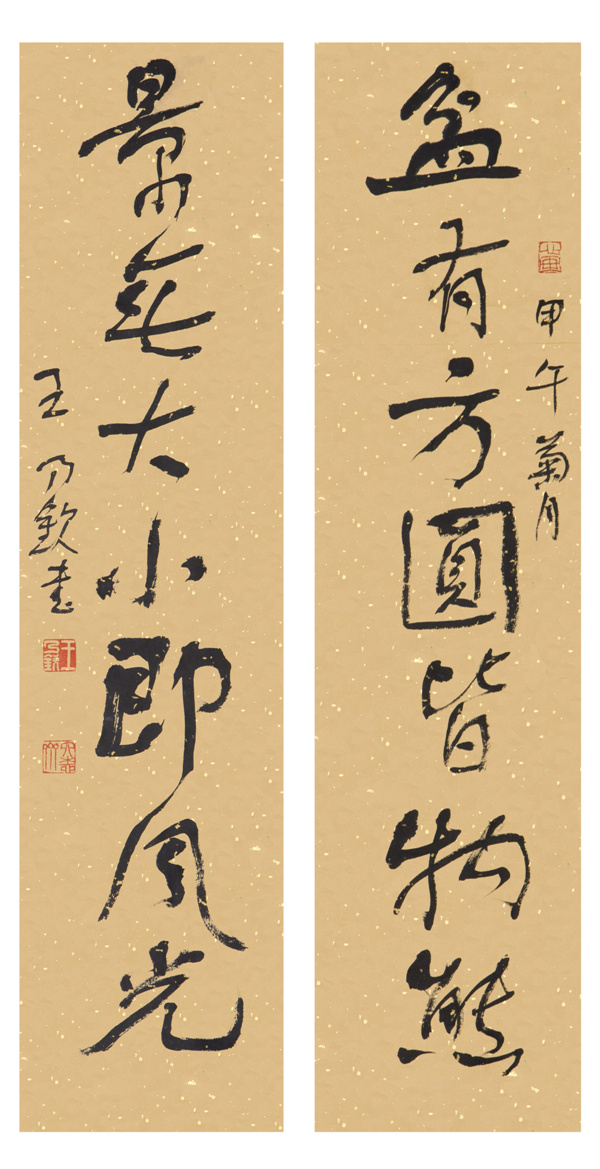 甲午菊月
盆有方圓皆物態
景無大小即風光
王乃欽書